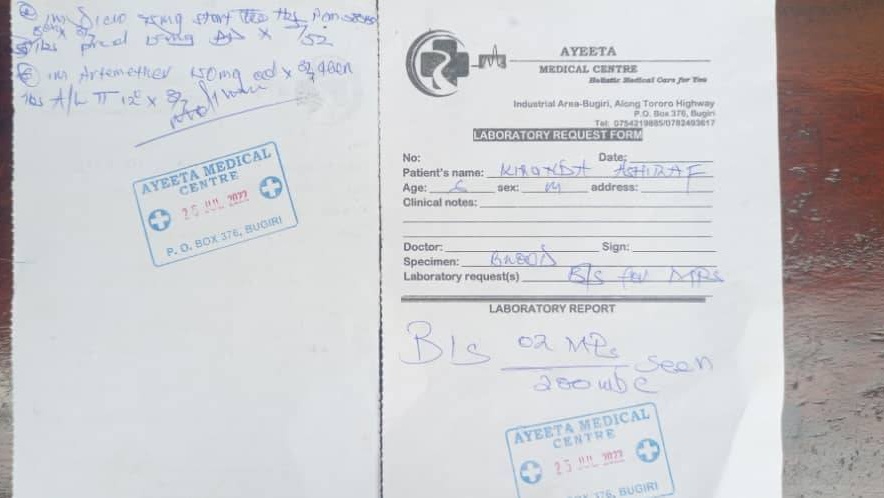 im Diclo 75mg start
pred 15mg BD x /52
im Artemether 150mg od x
tbs A/L TT 12° x
AYEETA MEDICAL
CENTRE
25 JUL 2022
P.O. BOX 376, BUGIRI
AYEETA
MEDICAL CENTRE
Holistic Medical Care for You
Industrial Area-Bugiri, Along Tororo Highway
P.O. Box 376, Bugiri
Tel: 0754219885/0782493617
LABORATORY REQUEST FORM
No: Date:
Patient's name: KIRONDA ASHIRAF
Age: 6 sex: M address:
Clinical notes:
Doctor: Sign:
Specimen: BLOOD
Laboratory request(s) B/s for MPs
LABORATORY REPORT
B/s 02 MPs seen
200 wbc
AYEETA MEDICAL
CENTRE
25 JUL 2022
BOX 376, BUGIRI